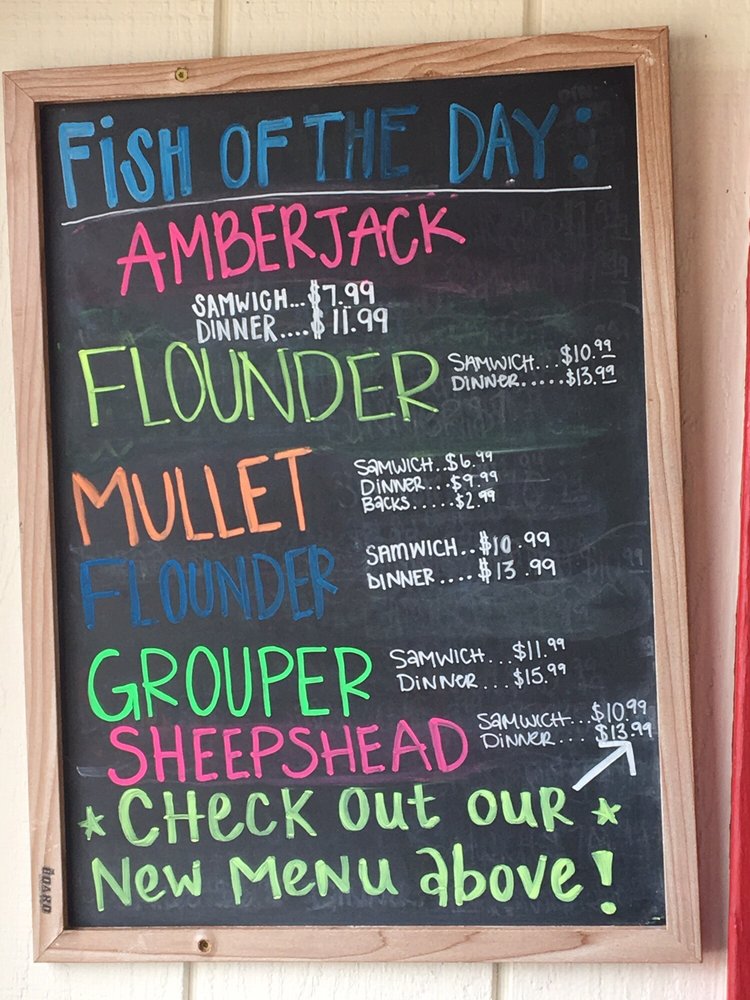 FiSH OF THE DAY:
AMBERJACK
SAMWICH...$7.99
DINNER....$11.99
FLOUNDER
SAMWICH...$10.99
DINNER.....$13.99
MULLET
SAMWICH..$6.99
DINNER...$9.99
BACKS.....$2.99
FLOUNDER
SAMWICH..$10.99
DINNER....$13.99
GROUPER
SAMWICH...$11.99
DINNER...$15.99
SHEEPSHEAD
SAMWICH...$10.99
DINNER....$13.99
*CHECK OUT OUR*
NEW MENU ABOVE!